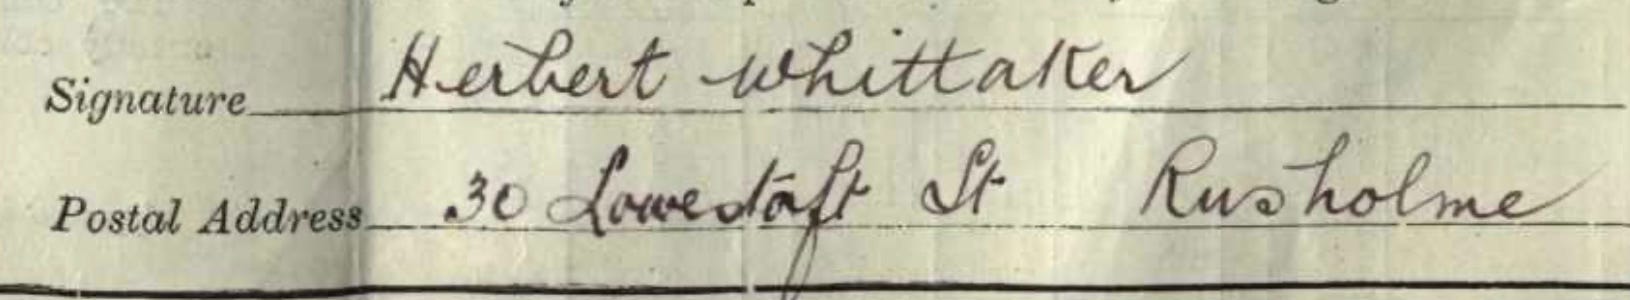 Signature Herbert Whittaker
Postal Address 30 Lowestoft St Rusholme